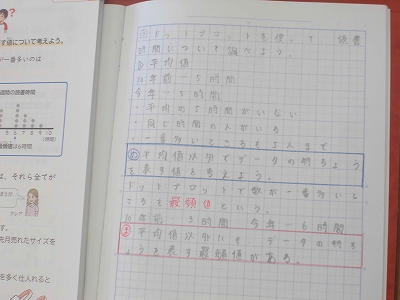 す値について考えよう。
が一番多いのは
週間の読書時間
0 1 2 3 4 5 6 7 8 9 10
(時間)
最頻値は6時間
は、それら全てが
先月売れたサイズを
を多く仕入れると
ドットプロットを使って 読書
時間について調べよう。
平均値
年前…5時間
今年…5時間
・平均の5時間がいない
・同じ時間の人がいる
・一番多いところも
め 平均値以外でデータの特ちょう
を表す値を考えよう。
ドットプロットで数が一番多いと
ころを最頻値という。
年前…3時間 今年…6時間
ま 平均値以外にも データの特ち
ょうを表す最頻値がある。